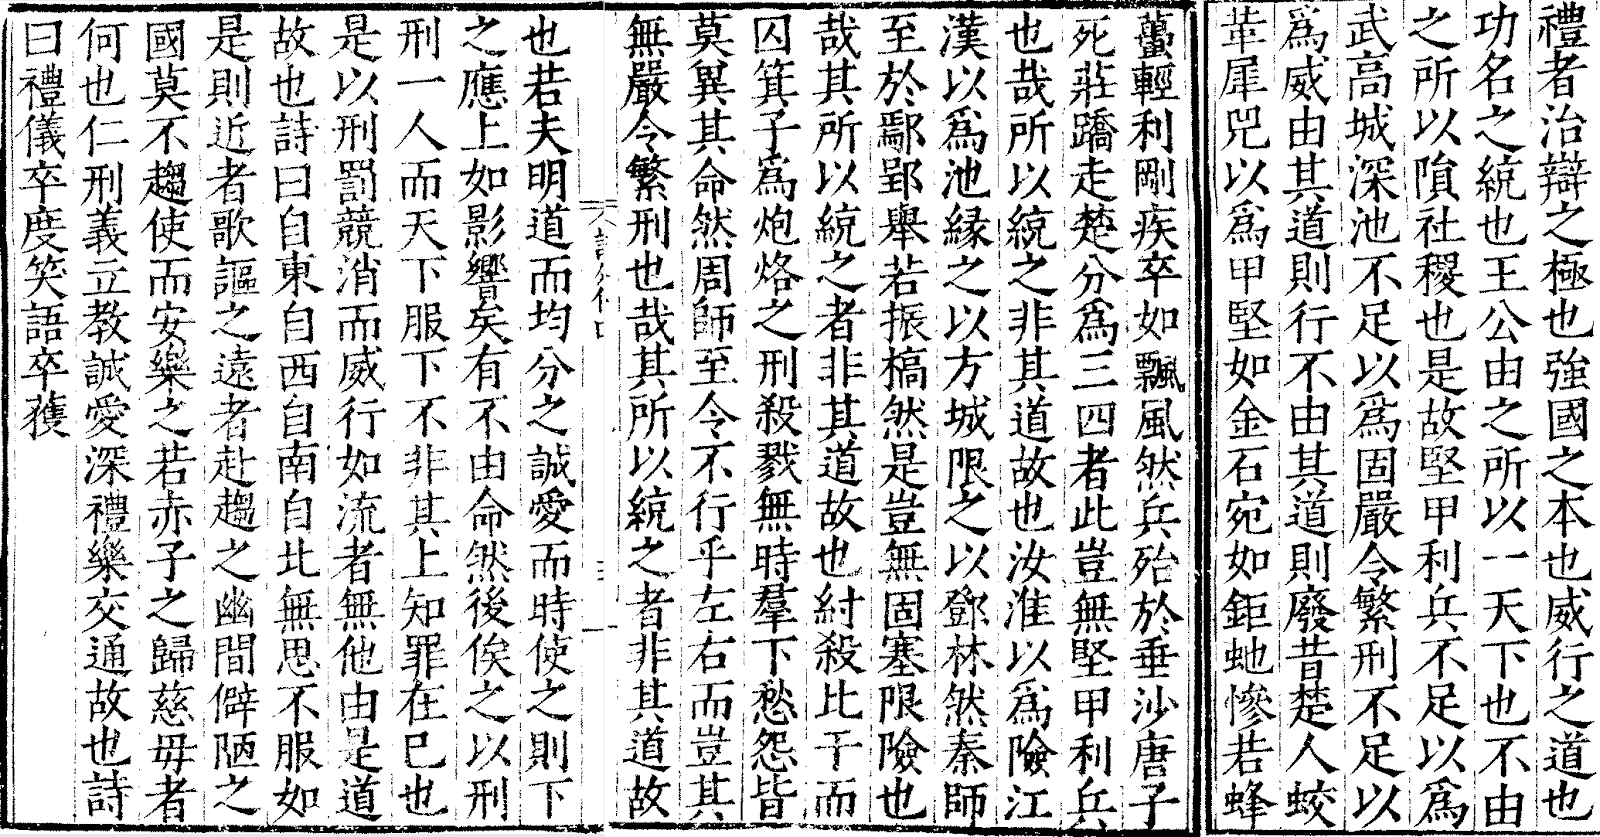 禮者治辯之極也強國之本也威行之道也
功名之統也王公由之所以一天下也不由
之所以隕社稷也是故堅甲利兵不足以爲
武高城深池不足以爲固嚴令繁刑不足以
爲威由其道則行不由其道則廢昔楚人蛟
革犀兕以爲甲堅如金石宛如鉅虵慘若蜂
蠆輕利剛疾卒如飄風然兵殆於垂沙唐子
死莊蹻走楚分爲三四者此豈無堅甲利兵
也哉所以統之非其道故也汝淮以爲險江
漢以爲池緣之以方城限之以鄧林然秦師
至於鄢郢舉若振槁然是豈無固塞限險也
哉其所以統之者非其道故也紂殺比干而
囚箕子爲炮烙之刑殺戮無時羣下愁怨皆
莫異其命然周師至令不行乎左右而豈其
無嚴令繁刑也哉其所以統之者非其道故
也若夫明道而均分之誠愛而時使之則下
之應上如影響矣有不由命然後俟之以刑
刑一人而天下服下不非其上知罪在已也
是以刑罰競消而威行如流者無他由是道
故也詩曰自東自西自南自北無思不服如
是則近者歌謳之遠者赴趨之幽閒僻陋之
國莫不趨使而安樂之若赤子之歸慈母者
何也仁刑義立教誠愛深禮樂交通故也詩
曰禮儀卒度笑語卒獲